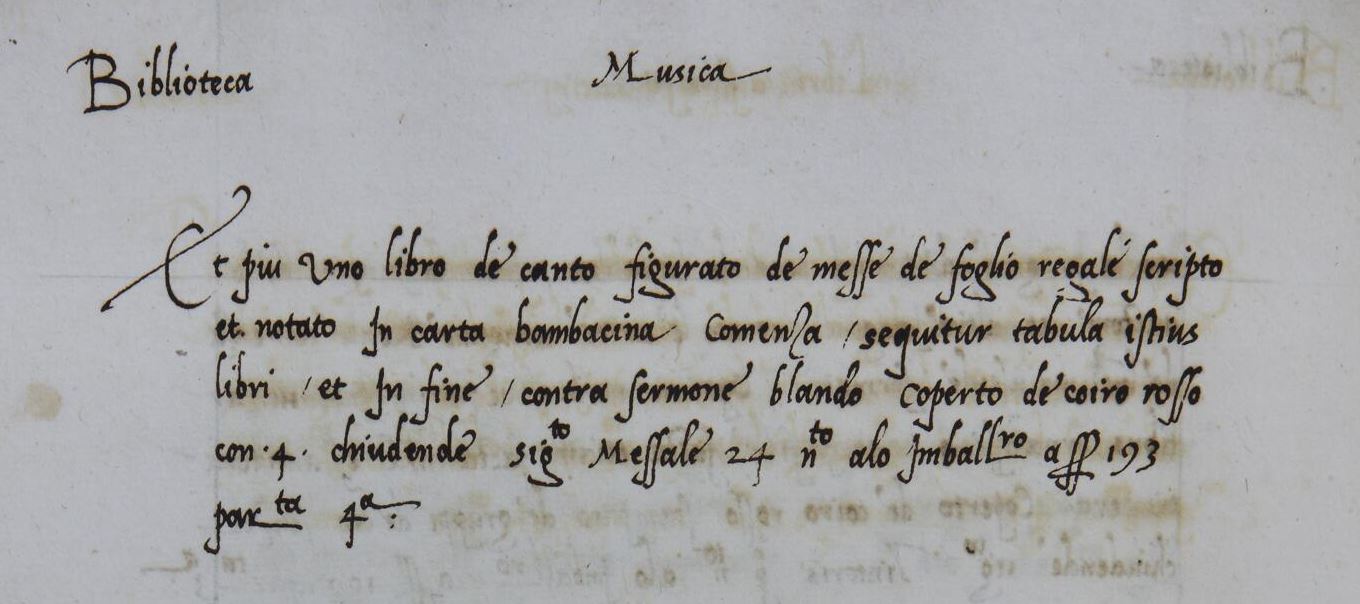 Biblioteca Musica
Et piu Uno libro de canto figurato de messe de foglio regale scripto
et notato In carta bambacina Comenza / sequitur tabula istius
libri / et In fine / contra sermone blando Coperto de coiro rosso
con ·4· chiudende sig^to Messale 24 n^to alo Imball^ro a 193
par^ta 4^a :